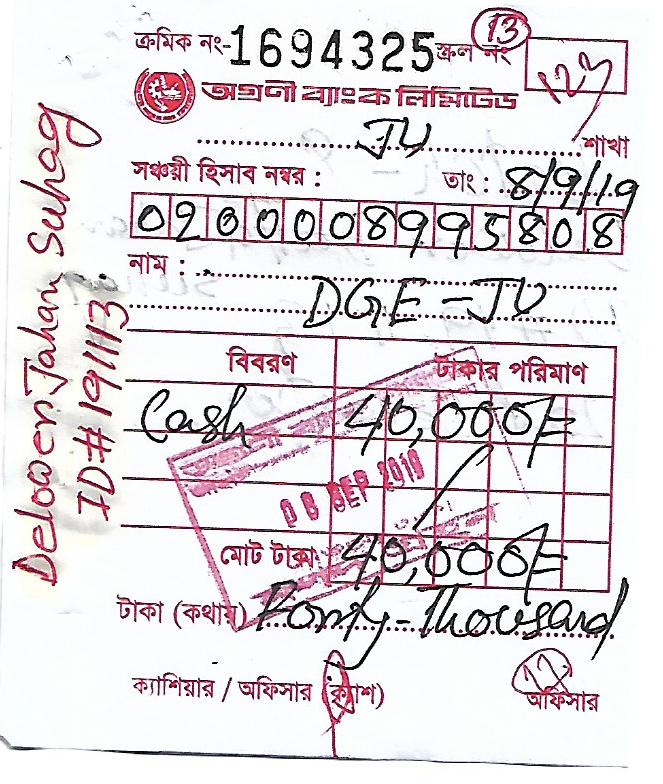 ক্রমিক নং-1694325 স্ক্রল নং 13
123
অগ্রনী ব্যাংক লিমিটেড
JU শাখা
সঞ্চয়ী হিসাব নম্বর : তাং : 8/9/19
0200008995808
নাম :
DGE-JU
বিবরণ টাকার পরিমাণ
Cash 40,000/=
08 SEP 2019
মোট টাকা: 40,000/=
টাকা (কথায়) Fourty-Thousand
ক্যাশিয়ার / অফিসার (ক্যাশ) অফিসার
Delower Jahan Suhag
ID# 191113